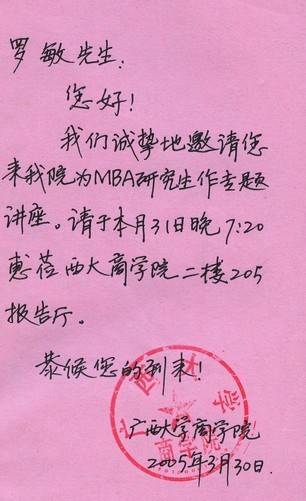 罗敏先生：
您好！
我们诚挚地邀请您
来我院为MBA研究生作专题
讲座。请于本月31日晚7:20
惠莅西大商学院二楼205
报告厅。
恭候您的到来！
广西大学商学院
2005年3月30日.
广西大学
商学院